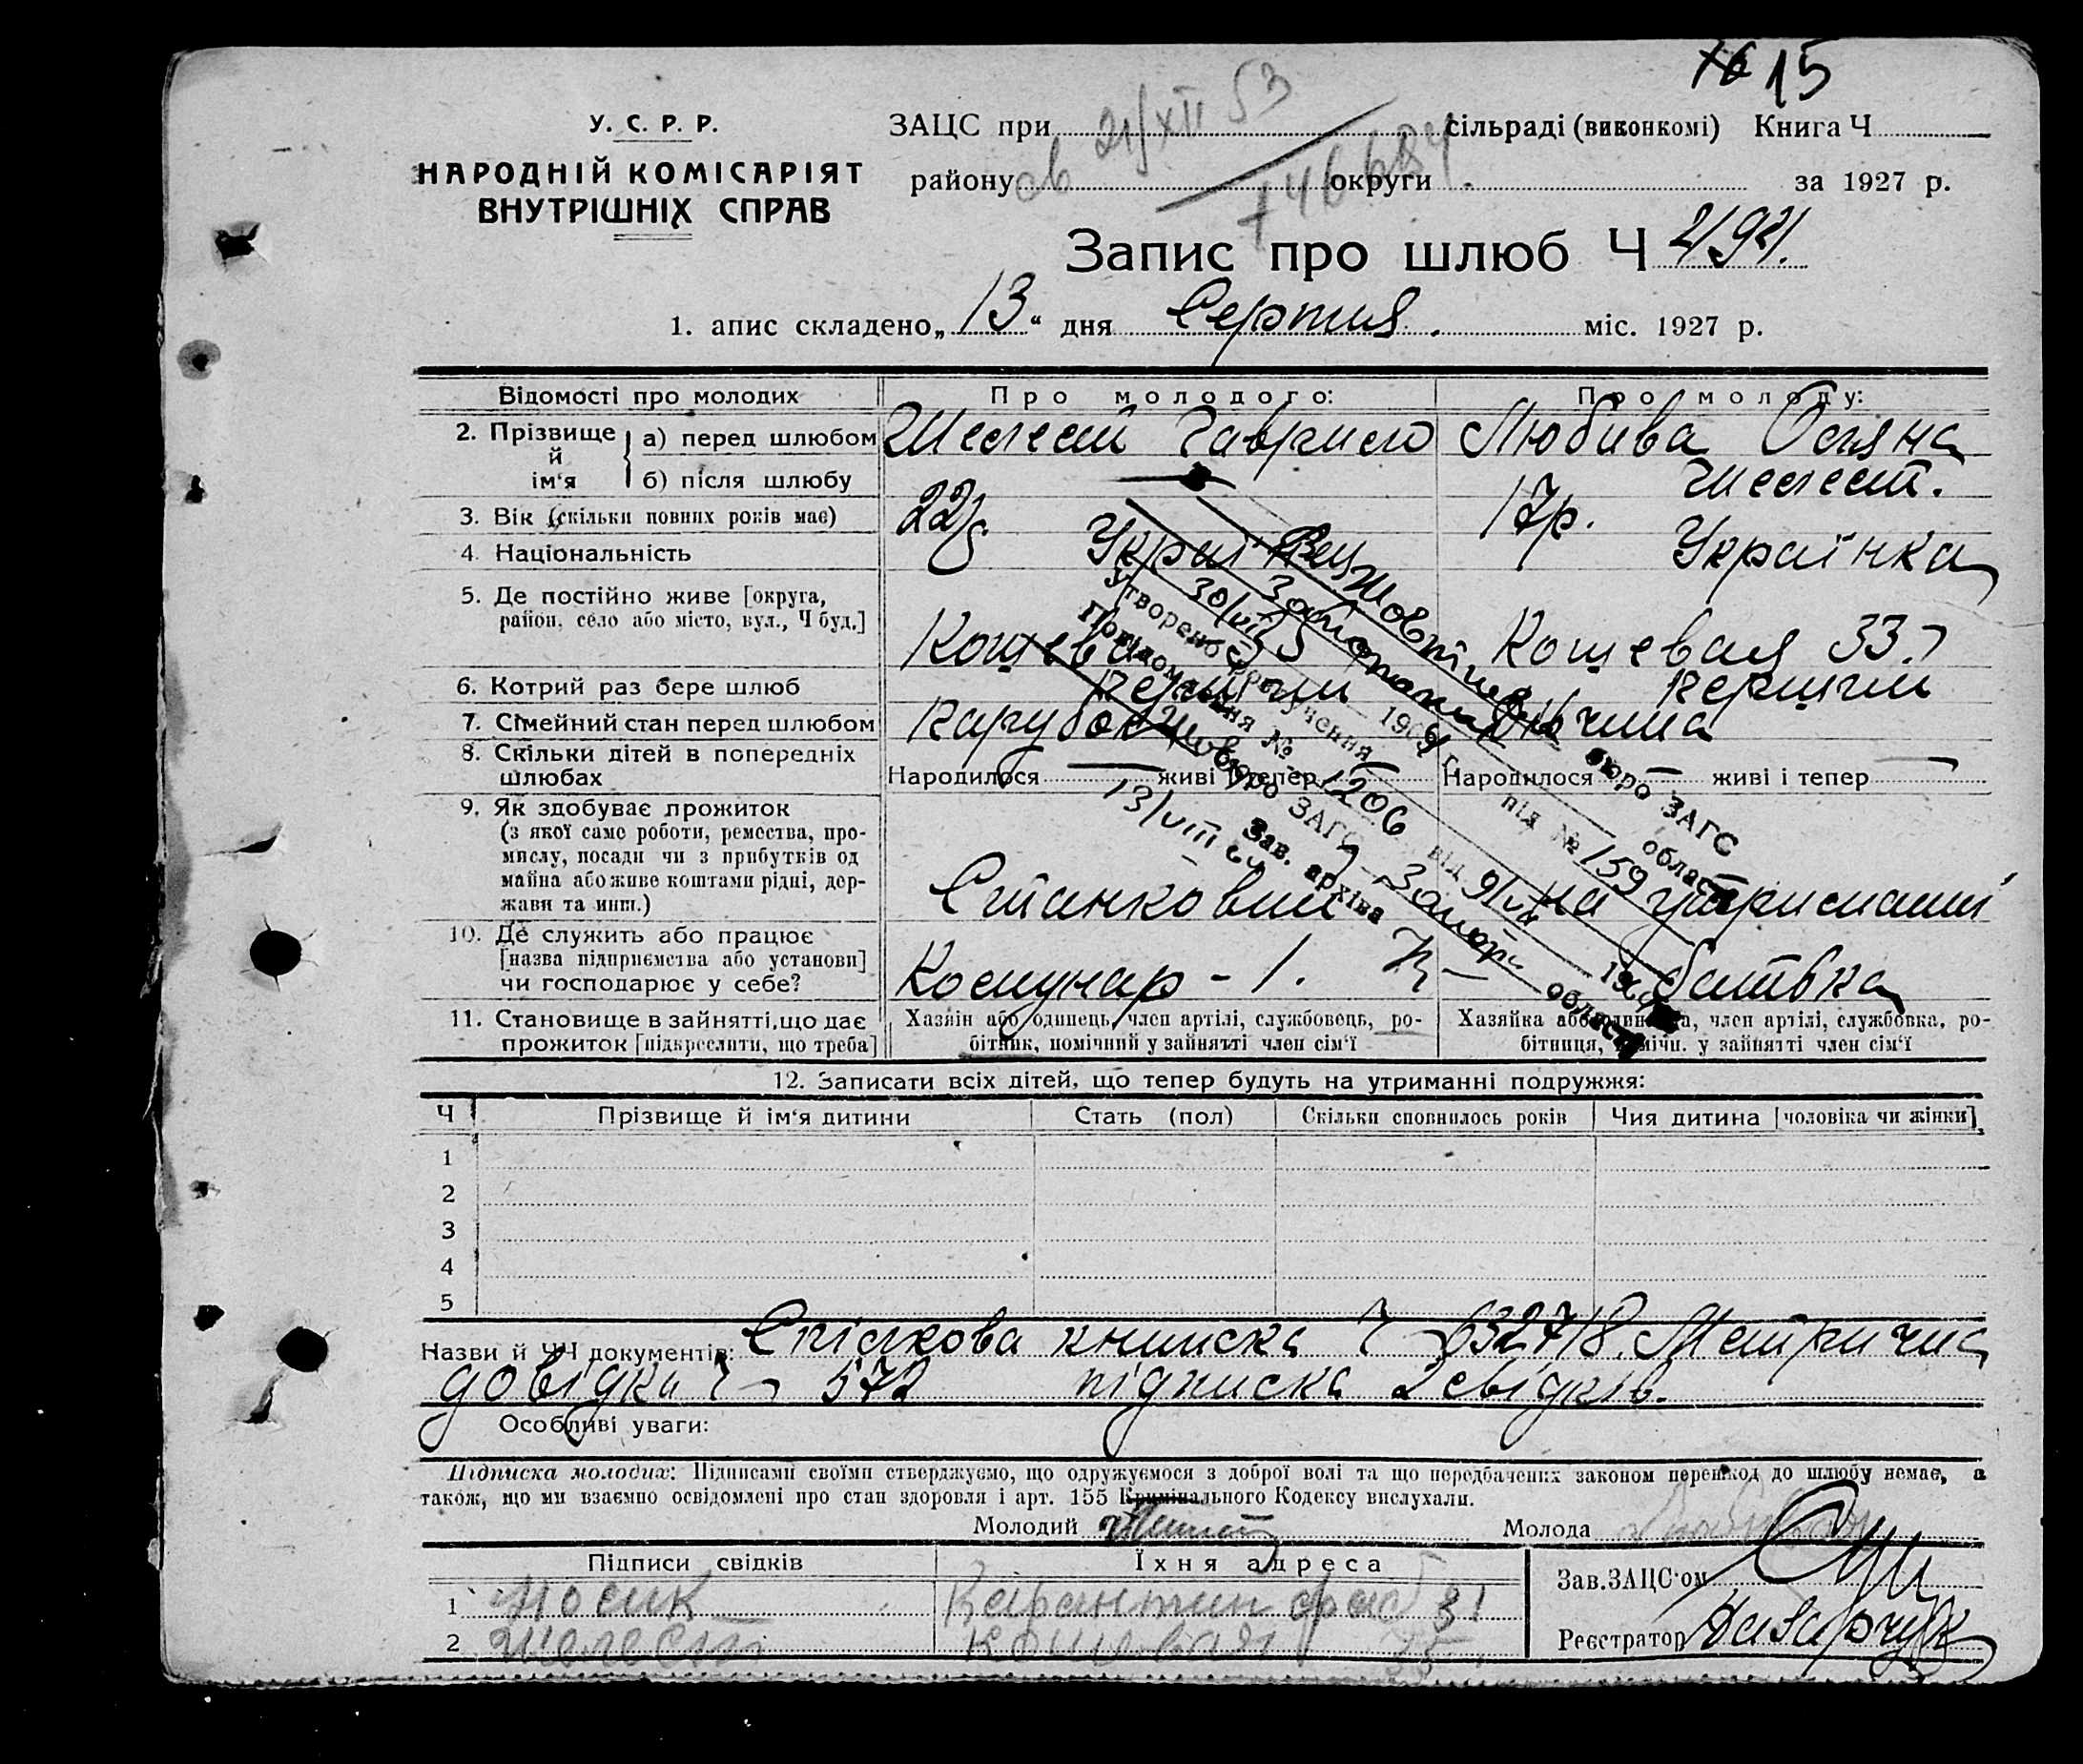 15
У. С. Р. Р.
НАРОДНІЙ КОМІСАРІЯТ
ВНУТРІШНІХ СПРАВ
ЗАЦС при сільраді (виконкомі) Книга Ч
району округи за 1927 р.
21/XII 53
Запис про шлюб Ч
1. апис складено „13“ дня Серпня міс. 1927 р.
Відомості про молодих
Про молодого:
Про молоду:
2. Прізвище й ім'я
а) перед шлюбом Шелест Гаврило Любива Оляна
б) після шлюбу — Шелест.
3. Вік (скільки повних років має) 22 17р.
4. Національність Українка
5. Де постійно живе [округа,
район, село або місто, вул., Ч буд.] Кошевая 33
6. Котрий раз бере шлюб
7. Сімейний стан перед шлюбом Парубок
8. Скільки дітей в попередніх
шлюбах
Народилося — живі і тепер — Народилося — живі і тепер —
9. Як здобуває прожиток
(з якої саме роботи, ремества, про-
мислу, посади чи з прибутків од
майна або живе коштами рідні, дер-
жави та инш.)
на утриманні
10. Де служить або працює
[назва підприємства або установи]
чи господарює у себе?
Комунар - 1. батька
11. Становище в зайнятті, що дає
прожиток [підкреслити, що треба]
Хазяїн або одинець, член артілі, службовець, ро-
бітник, помічний у зайнятті член сім'ї
Хазяйка або член артілі, службовка, ро-
бітниця, у зайнятті член сім'ї
бюро ЗАГС
області
Утворено розлучення під № 159
Повідомлення № 1206 від
бюро ЗАГС області
Зав. архіва
12. Записати всіх дітей, що тепер будуть на утриманні подружжя:
Ч Прізвище й ім'я дитини Стать (пол) Скільки сповнилось років Чия дитина [чоловіка чи жінки]
1
2
3
4
5
Назви й ЧЧ документів: Спілкова книжка Ч 632718. Метрична
довідка Ч 572 підписка 2 свідків.
Особливі уваги:
Підписка молодих: Підписами своїми стверджуємо, що одружуємося з доброї волі та що передбачених законом перешкод до шлюбу немає, а
також, що ми взаємно освідомлені про стан здоровля і арт. 155 Кримінального Кодексу вислухали.
Молодий Молода
Підписи свідків Їхня адреса
1 Носик
2 Шелест
Зав. ЗАЦС'ом
Реєстратор